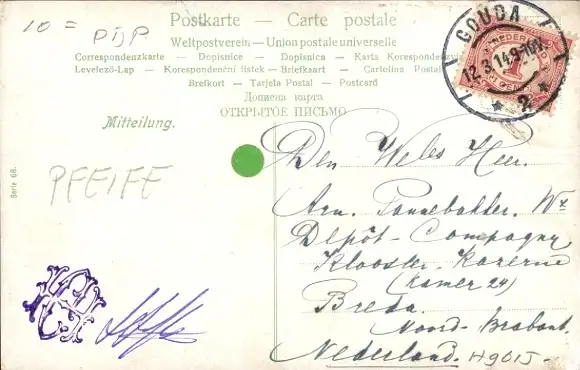 10 = PIJP
Postkarte — Carte postale
Weltpostverein — Union postale universelle
Correspondenzkarte — Dopisnice — Dopisnica — Karta Korespondenz
Levelező-Lap — Korespondenční lístek — Briefkaart — Cartolina Postal
Brefkort — Tarjeta Postal — Postcard
Дописна карта
ОТКРЫТОЕ ПИСЬМО
GOUDA
12.3.14.9-10V.
2
NEDERLAND
1
CENT
Mitteilung.
PFEIFE
Serie 68.
Den Weled Heer.
Arn. Pannebakker. Wz
Depôt-Compagny
Klooster-Kazerne
(Kamer 24)
Breda.
Noord-Brabant.
Nederland.
H9015-